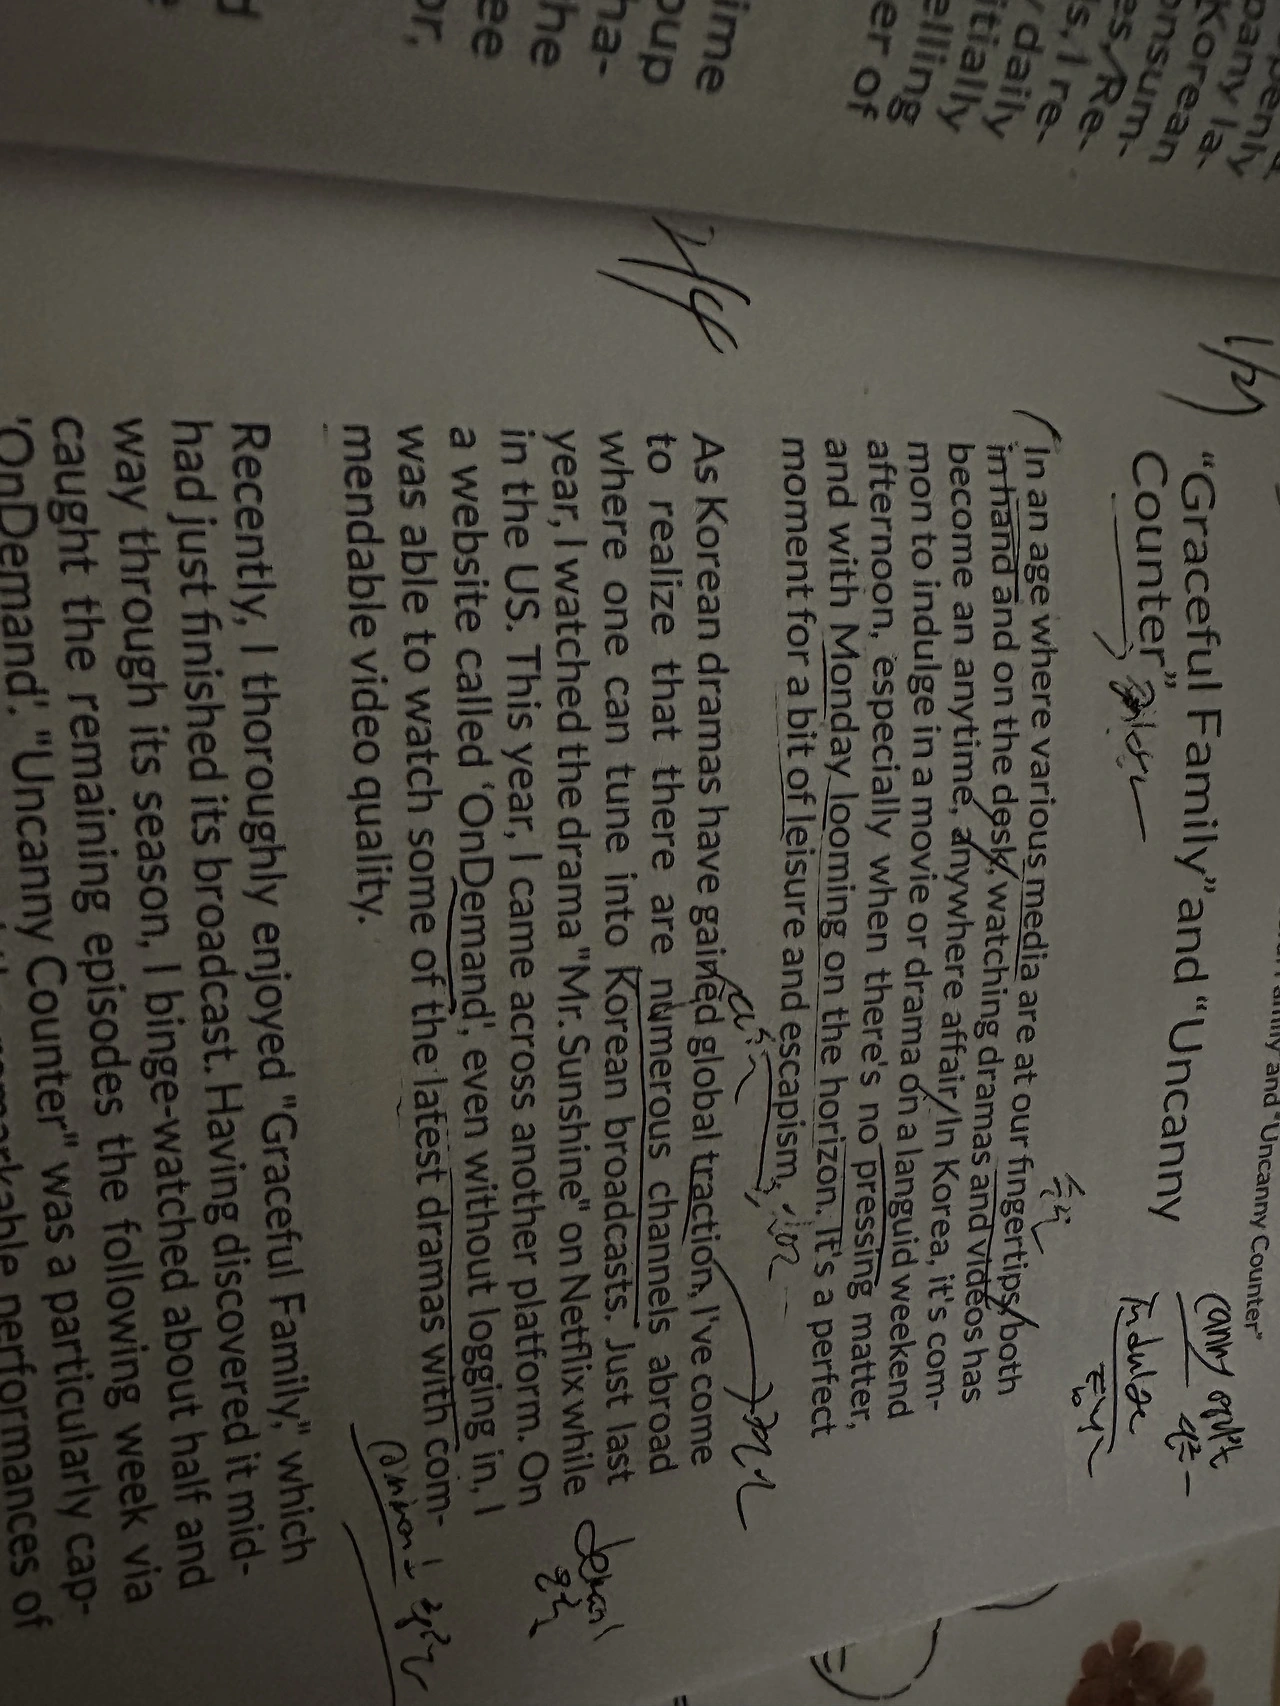 ime
oup
ha-
he
ee
or,
penly
pany la-
Korean
onsum-
es, Re-
s, I re-
daily
itially
elling
er of
amily and "Uncanny Counter"
"Graceful Family" and "Uncanny
Counter"
In an age where various media are at our fingertips, both
in hand and on the desk, watching dramas and videos has
become an anytime, anywhere affair. In Korea, it's com-
mon to indulge in a movie or drama on a languid weekend
afternoon, especially when there's no pressing matter,
and with Monday looming on the horizon. It's a perfect
moment for a bit of leisure and escapism.
As Korean dramas have gained global traction, I've come
to realize that there are numerous channels abroad
where one can tune into Korean broadcasts. Just last
year, I watched the drama "Mr. Sunshine" on Netflix while
in the US. This year, I came across another platform. On
a website called 'OnDemand', even without logging in, I
was able to watch some of the latest dramas with com-
mendable video quality.
Recently, I thoroughly enjoyed "Graceful Family," which
had just finished its broadcast. Having discovered it mid-
way through its season, I binge-watched about half and
caught the remaining episodes the following week via
'OnDemand'. "Uncanny Counter" was a particularly cap-
performances of
1/21
indulge